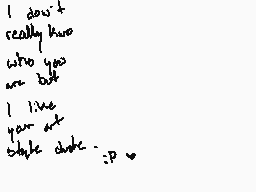 I don't
really kno
who you
are but
I like
your art
style dude.
:P ♥